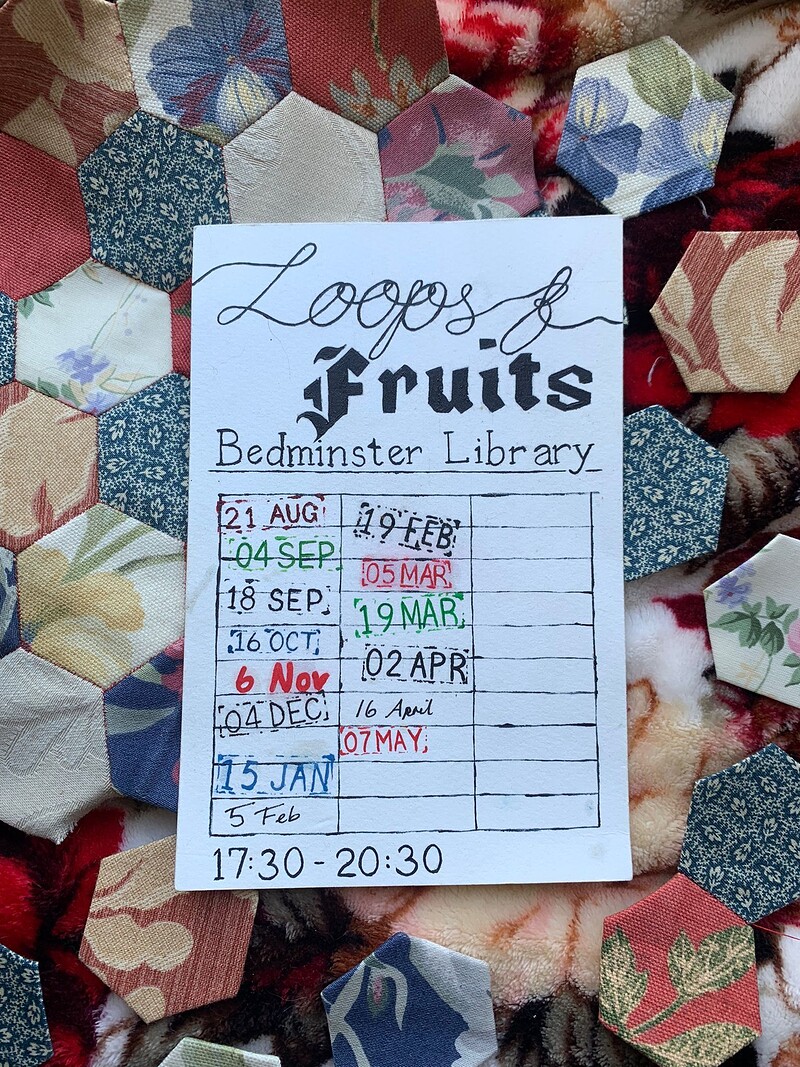 Loops &
Fruits
Bedminster Library
21 AUG
04 SEP
18 SEP
16 OCT
6 Nov
04 DEC
15 JAN
5 Feb
19 FEB
05 MAR
19 MAR
02 APR
16 April
07 MAY
17:30 - 20:30